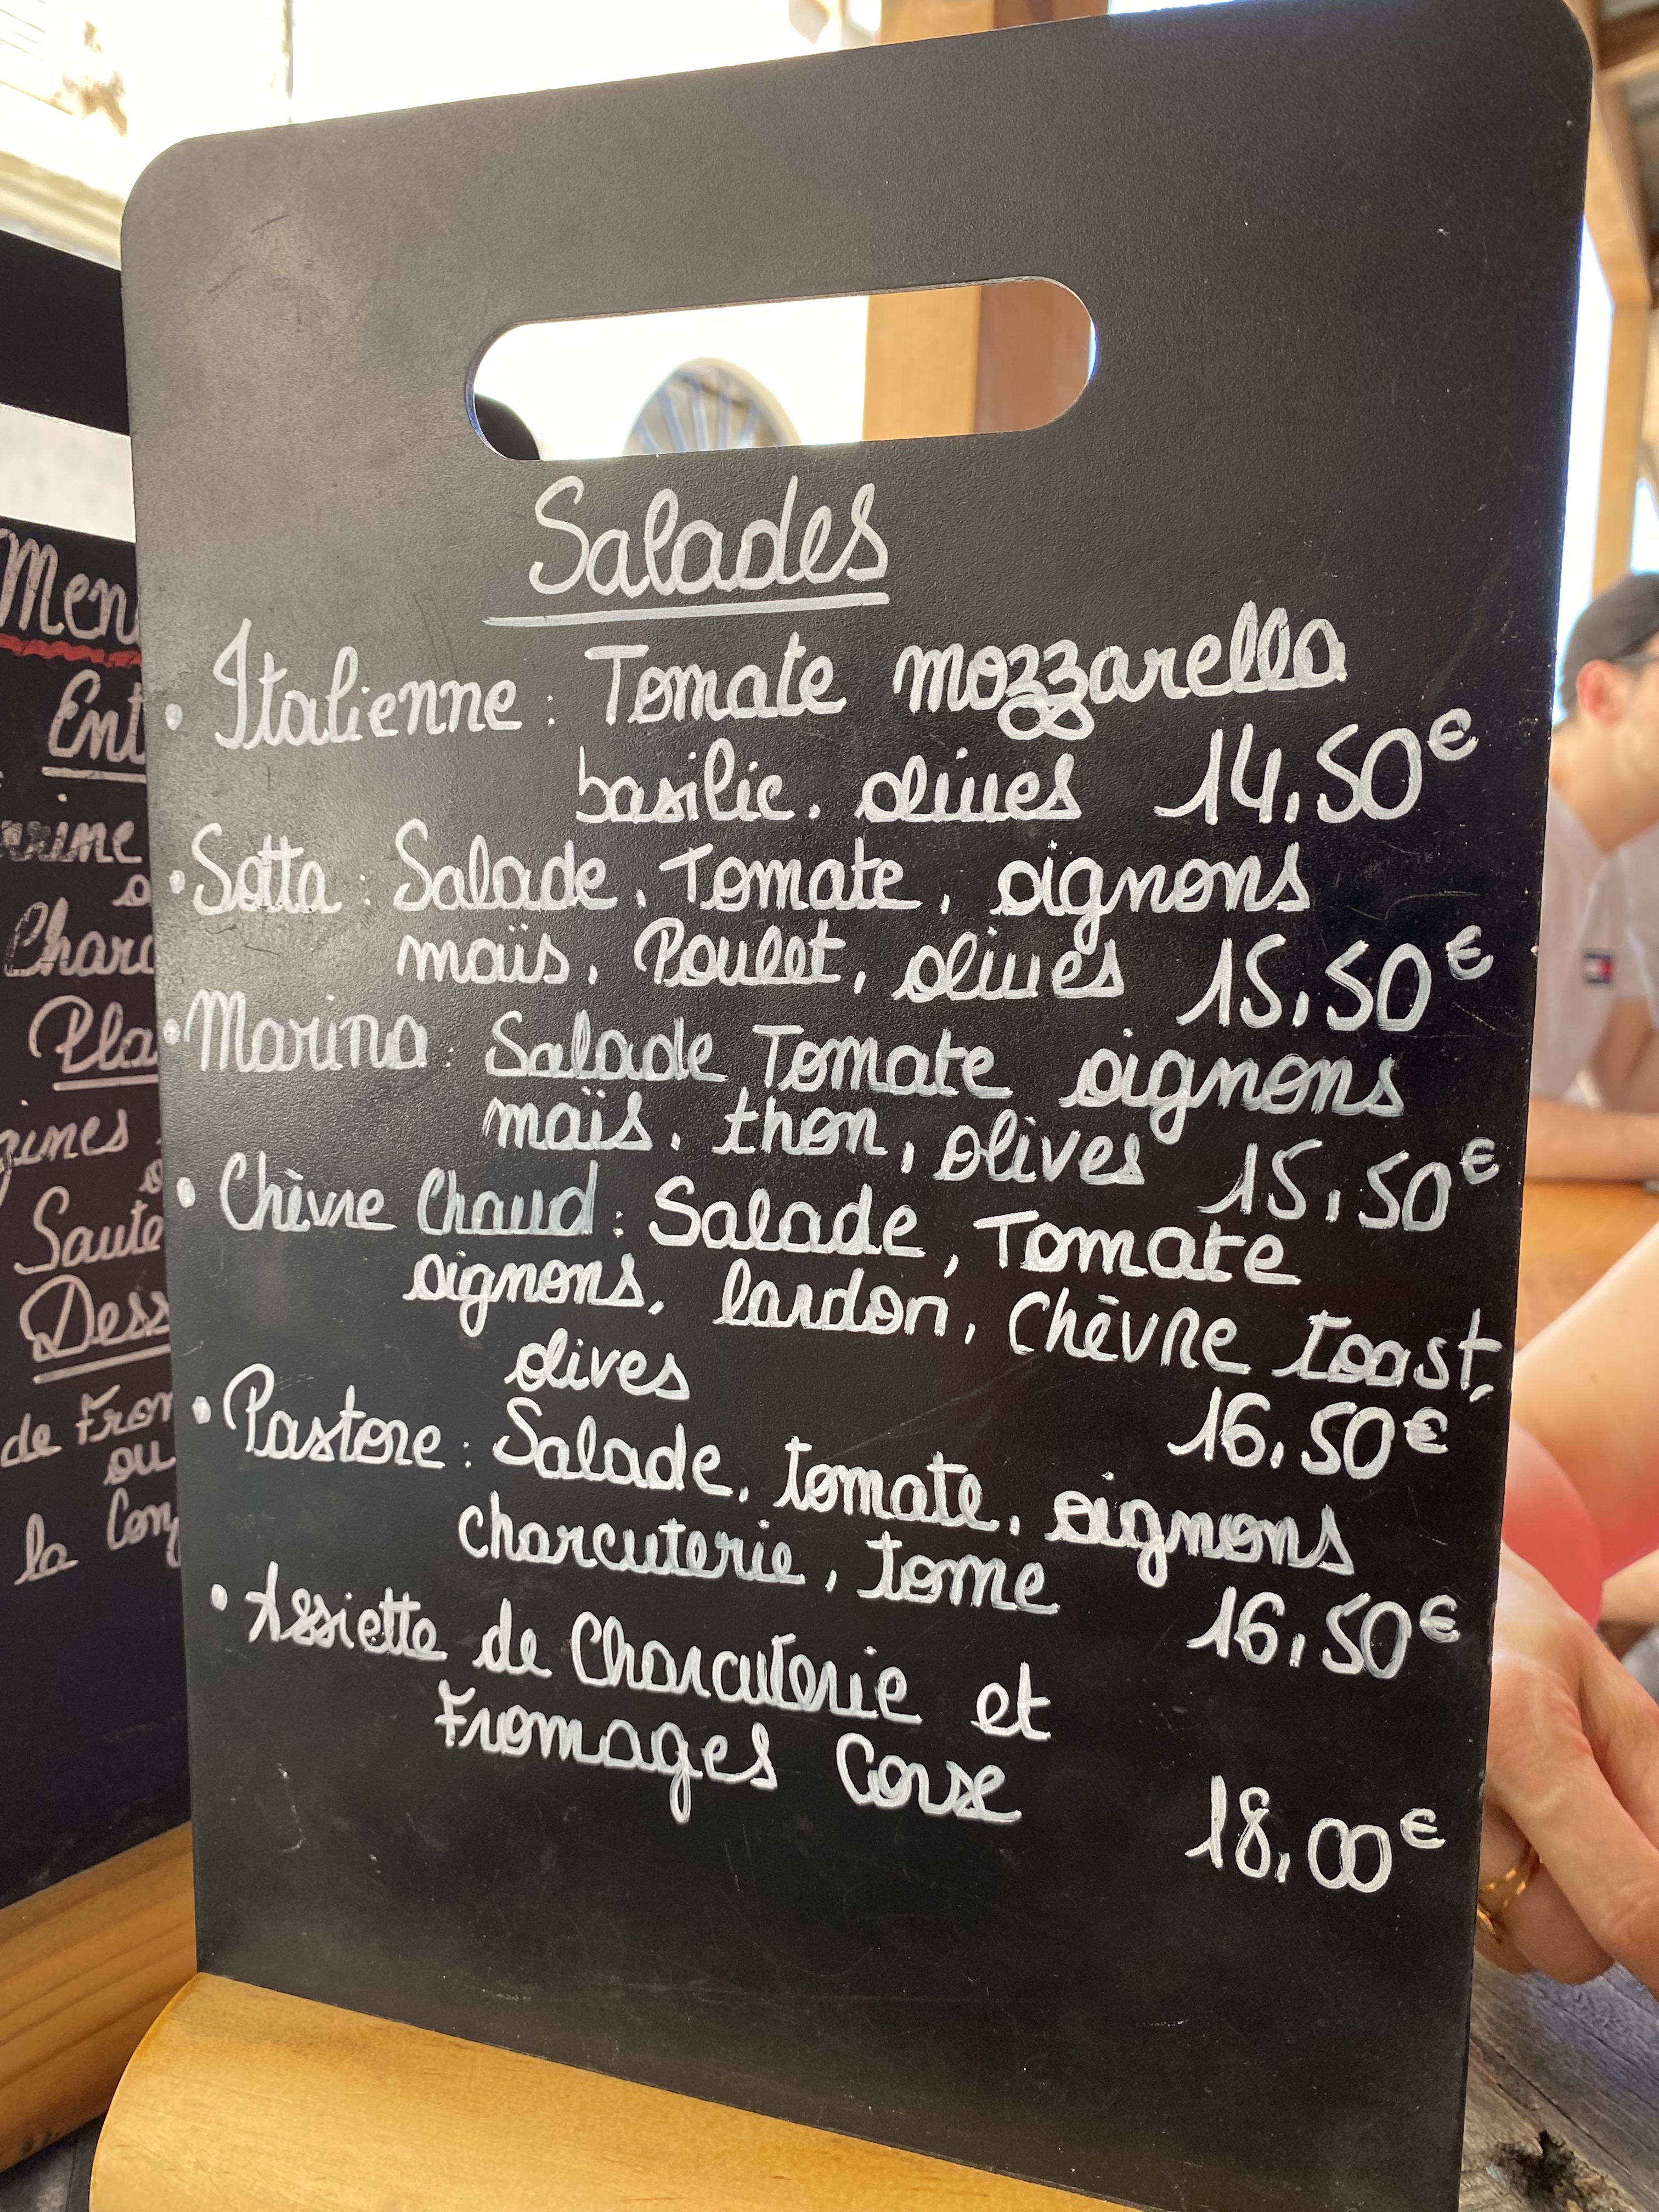 Salades
• Italienne : Tomate mozzarella
basilic, olives 14,50€
• Sotta : Salade, Tomate, oignons
maïs, Poulet, olives 15,50€
• Marina : Salade, Tomate oignons
maïs, thon, olives 15,50€
• Chèvre Chaud : Salade, Tomate
oignons, lardon, Chèvre toast,
olives 16,50€
• Pastore : Salade, tomate, oignons
charcuterie, tome 16,50€
• Assiette de Charcuterie et
Fromages Corse
18,00€
Men
Ent
Charc
Pla
Saute
Dess
de From
ou
la Con